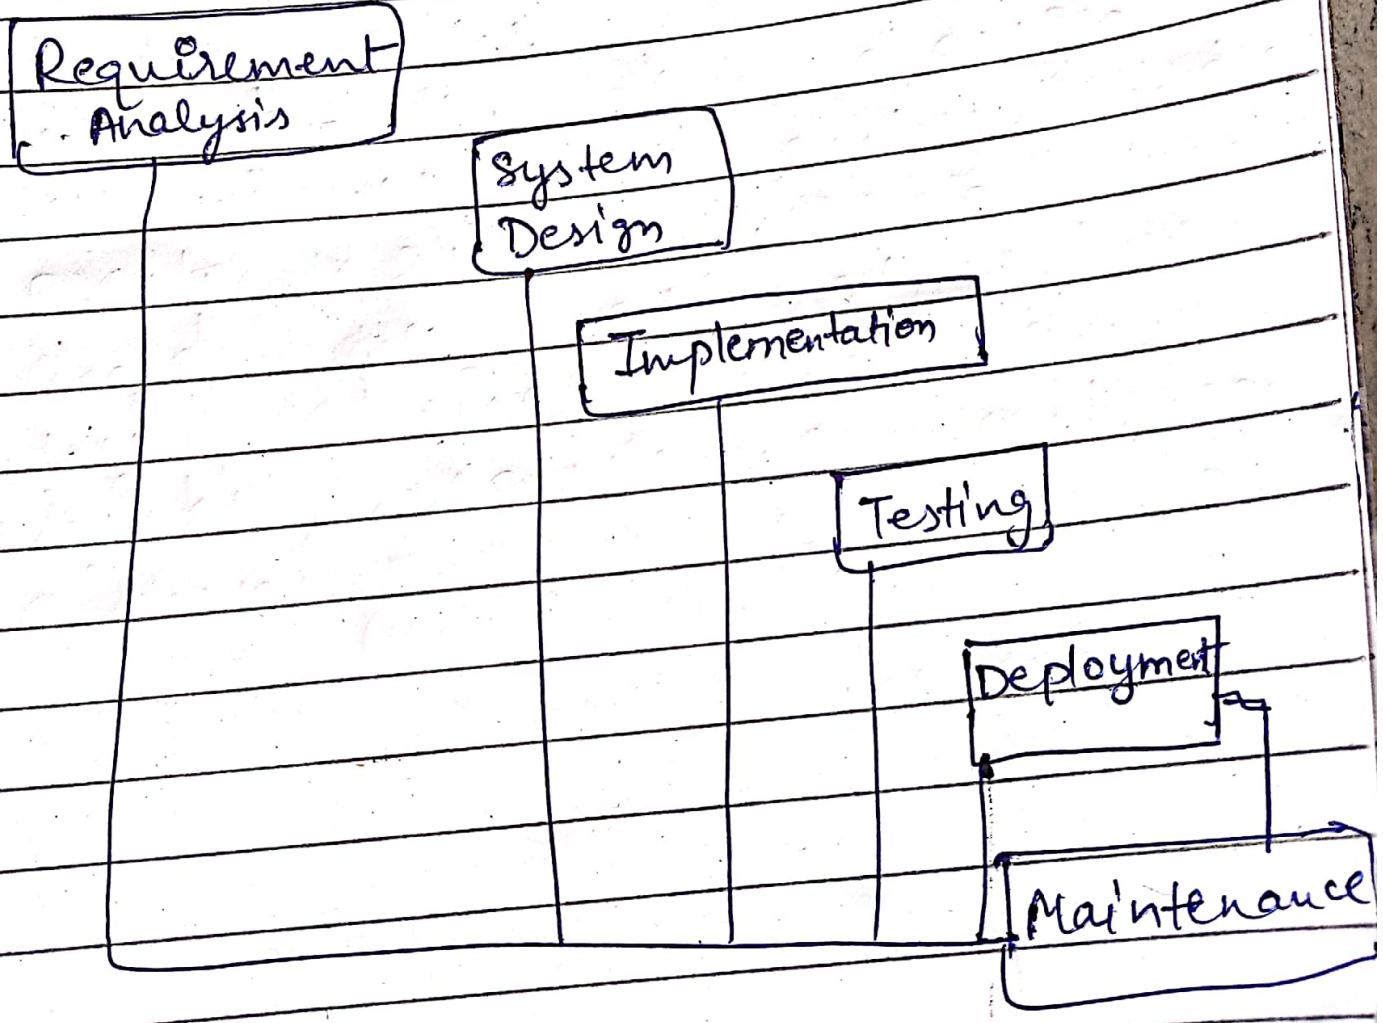 Requirement
Analysis
System
Design
Implementation
Testing
Deployment
Maintenance